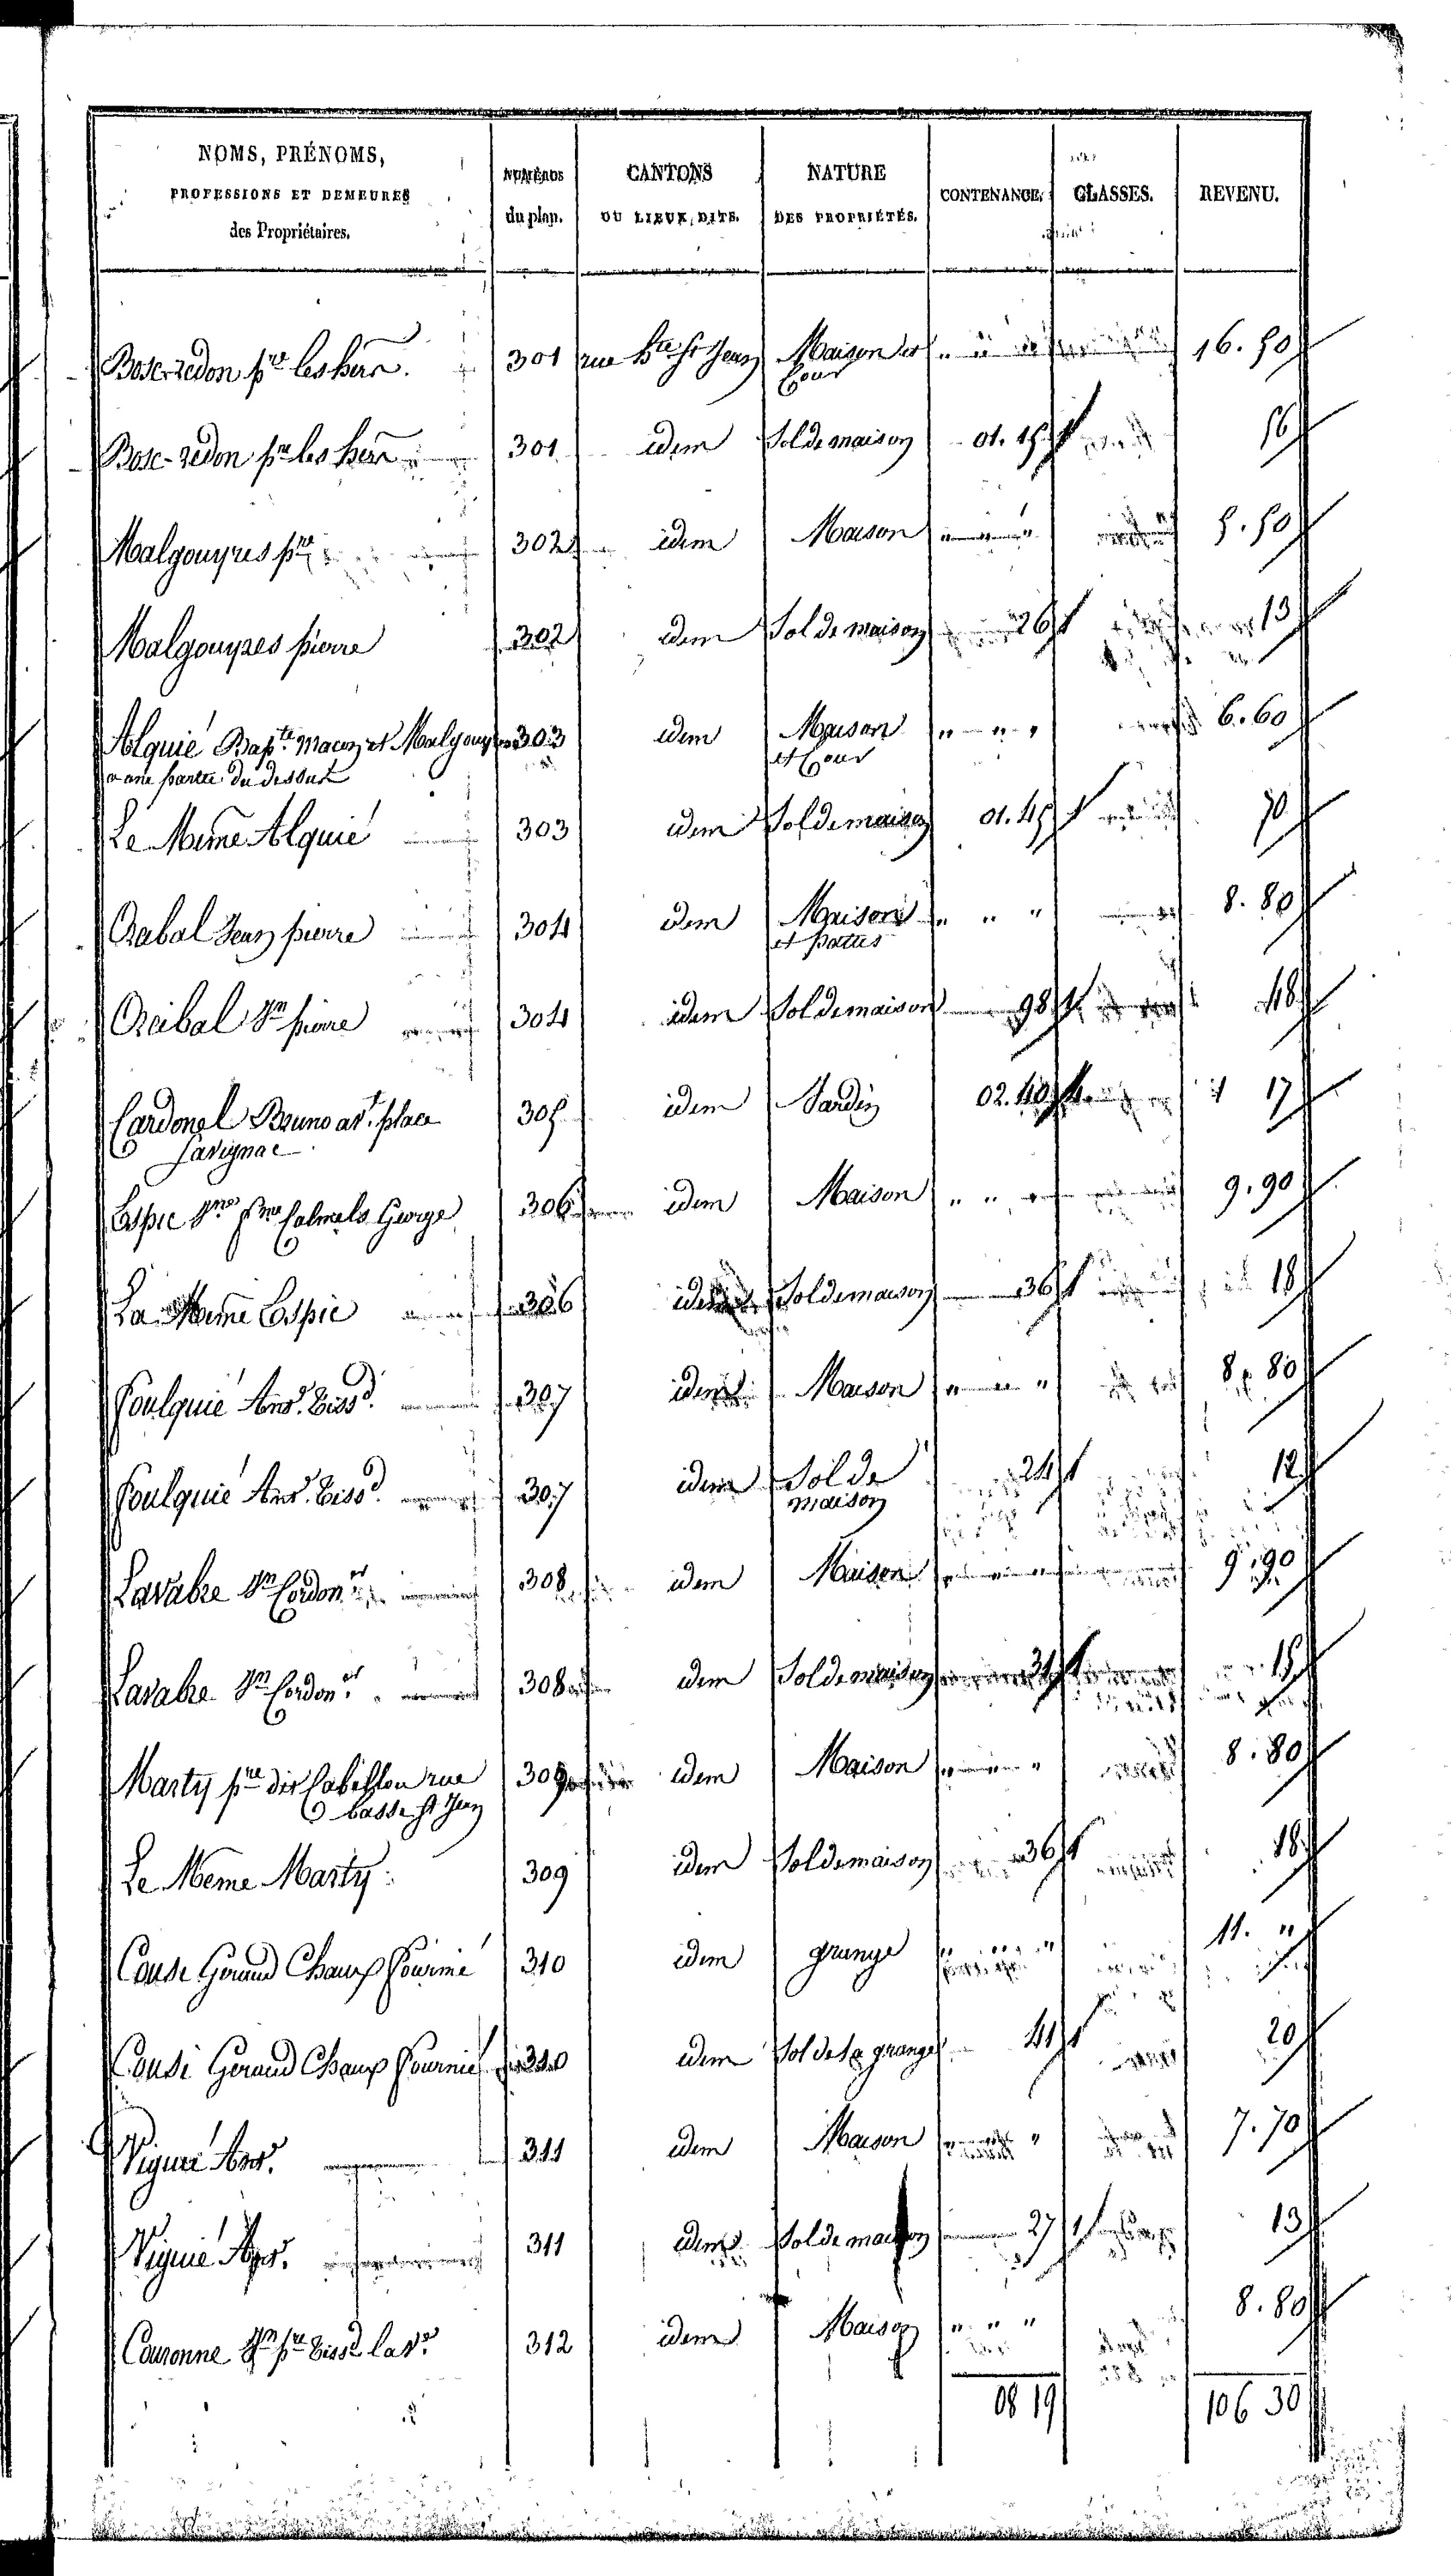 NOMS, PRÉNOMS,
PROFESSIONS ET DEMEURES
des Propriétaires.
NUMÉROS
du plan.
CANTONS
OU LIEUX, DITS.
NATURE
DES PROPRIÉTÉS.
CONTENANCE.
CLASSES.
REVENU.
Bosc-redon pre les hers. 301 rue hte St Jean Maison et 16. 50
Cour
Bosc-redon pre les hers 301 idem Sol de maison 01. 15 1 56
Malgouyres pre 302 idem Maison " " " 5. 50
Malgouyres pierre 302 idem Sol de maison 26 1 13
Alquié Bapte. Maçon et Malgouyres 303 idem Maison " " " 6. 60
a une partie du dessus et Cour
Le Meme Alquié 303 idem Sol de maison 01. 45 1 70
Rabal Jean pierre 304 idem Maison " " " 8. 80
et pattus
Jn pierre 304 idem Sol de maison 98 1 48
Cardonel Bruno at. place 305 idem Jardin 02. 40 1 17
Savignac
Espic fme Calmels George 306 idem Maison " " " 9. 90
La Meme Espic 306 idem Sol de maison 36 1 18
Foulquié Ant. Tissd. 307 idem Maison " " " 8. 80
Foulquié Ant. Tissd. 307 idem Sol de 24 1 12
maison
Lavabre Jn Cordoner 308 idem Maison 9. 90
Lavabre Jn Cordoner. 308 idem Sol de maison 31 1 15
Marty pre dit rue 309 idem Maison " " " 8. 80
basse St Jean
Le Meme Marty 309 idem Sol de maison 36 1 18
Couse Geraud Chaux Fournié 310 idem grange " " " 11. "
Couse Geraud Chaux Fournié 310 idem Sol de la grange 41 1 20
Viguié Ant. 311 idem Maison " " " 7. 70
Viguié Ant. 311 idem Sol de maison 27 1 13
Couronne Jn pre Tissd 312 idem Maison " " " 8. 80
08 19 106 30